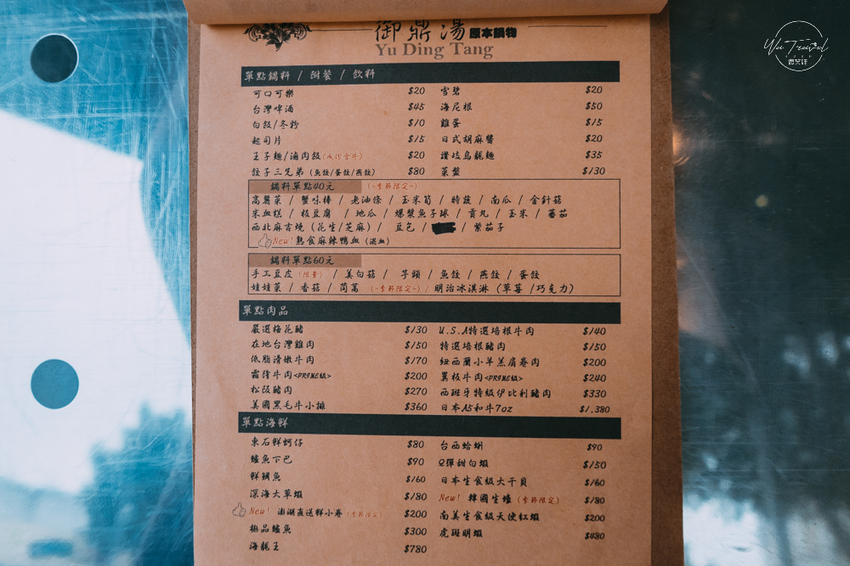 御鼎湯 原本鍋物
Yu Ding Tang
單點鍋料 / 附餐 / 飲料
可口可樂 $20 雪碧 $20
台灣啤酒 $45 海尼根 $50
白飯/冬粉 $10 雞蛋 $15
起司片 $15 日式胡麻醬 $20
王子麵/滷肉飯 $20 讚岐烏龍麵 $35
餃子三兄弟 (魚餃/蛋餃/燕餃) $80 菜盤 $130
鍋料單點40元 (~季節限定~)
高麗菜 / 蟹味棒 / 老油條 / 玉米筍 / 時蔬 / 南瓜 / 金針菇
米血糕 / 板豆腐 / 地瓜 / 爆漿魚子球 / 貢丸 / 玉米 / 蕃茄
西北麻吉燒 (花生/芝麻) / 豆包 / / 紫茄子
New! 熟食麻辣鴨血 (溫血)
鍋料單點60元
手工豆皮 (限量) / 美白菇 / 芋頭 / 魚餃 / 燕餃 / 蛋餃
娃娃菜 / 香菇 / 茼蒿 (~季節限定~) / 明治冰淇淋 (草莓 / 巧克力)
單點肉品
嚴選梅花豬 $130 U.S.A特選培根牛肉 $140
在地台灣雞肉 $150 特選培根豬肉 $150
低脂清嫩牛肉 $170 紐西蘭小羊羔肩卷肉 $200
霜降牛肉<PRIME級> $200 翼板牛肉<PRIME級> $240
松阪豬肉 $270 西班牙特級伊比利豬肉 $330
美國黑毛牛小排 $360 日本A5和牛7oz $1,380
單點海鮮
東石鮮蚵仔 $80 台西蛤蜊 $90
鱸魚下巴 $90 Q彈甜白蝦 $150
鮮鯛魚 $160 日本生食級大干貝 $160
深海大草蝦 $180 New! 韓國生蠔 (季節限定) $180
New! 澎湖直送鮮小卷 (季節限定) $200 南美生食級天使紅蝦 $200
極品鱸魚 $300 虎斑明蝦 $480
海龍王 $780